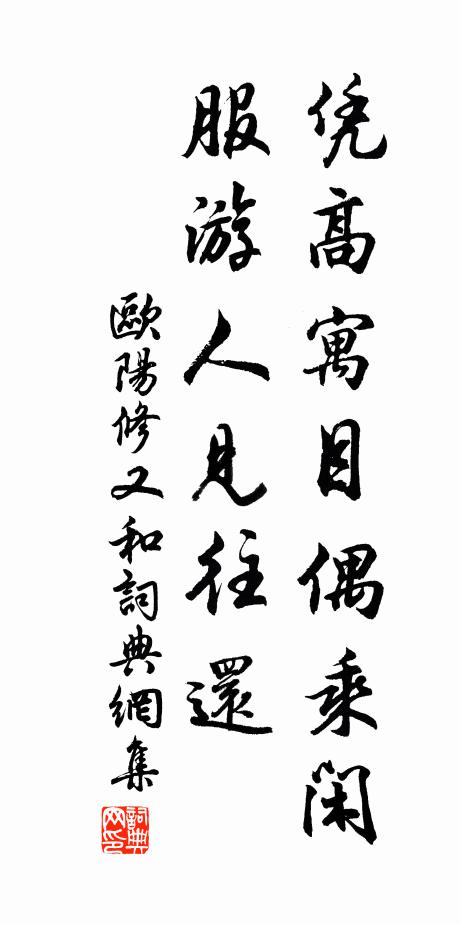 凭高寓目偶乘閑
服游人見往還
歐陽修又和詞典網集
詞典
网印